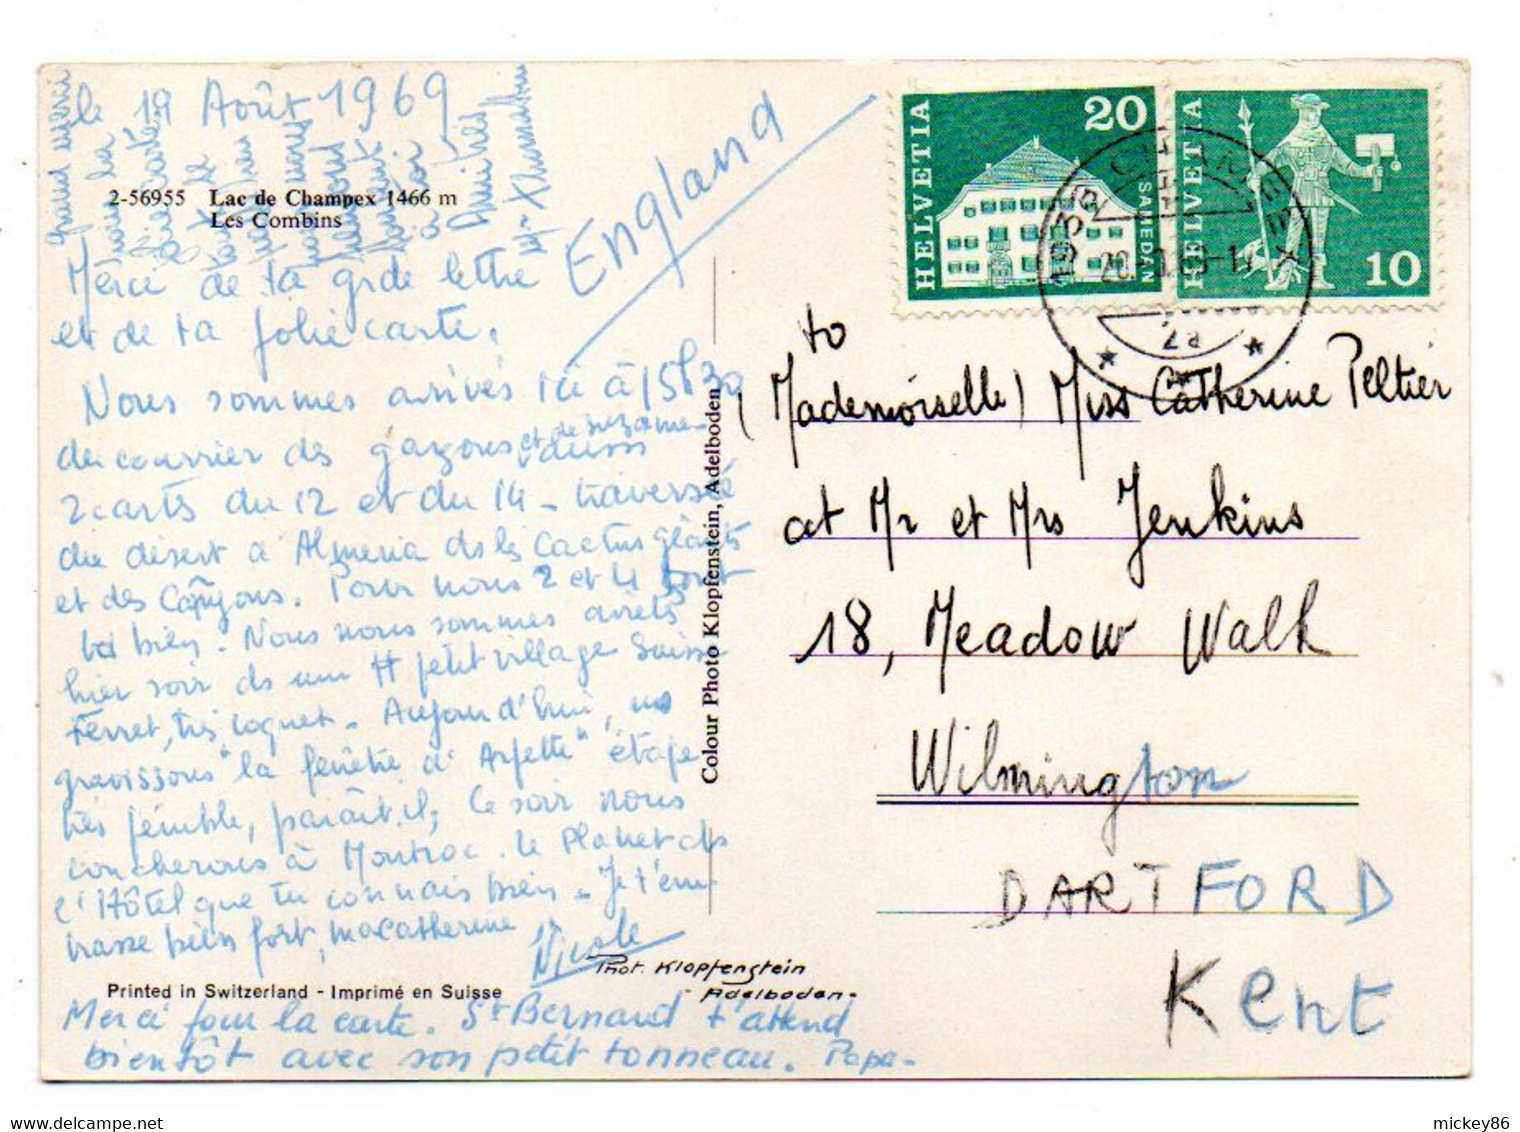 le 19 Août 1969
2-56955 Lac de Champex 1466 m
Les Combins
Merci de ta gde lettre
et de ta jolie carte.
Nous sommes arrivés ici à 15h30
du courrier des garçons et de Suzanne
2 carts du 12 et du 14 - traversée
du désert d'Almeria ds les Cactus géants
et des Cañyons. Pour nous 2 et 4 tout
va bien. Nous nous sommes arrêtés
hier soir ds un petit village Suisse
Ferret, très coquet. Aujourd'hui, ns
gravissons "la fenêtre d'Arpette" étape
très pénible, paraît-il; Ce soir nous
coucherons à Montroc. le Planet ds
l'Hôtel que tu connais bien. Je t'em-
brasse bien fort, ma Catherine,
Nicole
Merci pour la carte. St Bernard t'attend
bientôt avec son petit tonneau. Papa-
Grand merci
Amitiés
England
Printed in Switzerland - Imprimé en Suisse
Phot. Klopfenstein
- Adelboden -
Colour Photo Klopfenstein, Adelboden
HELVETIA 20 SAMEDAN
HELVETIA 10
1938 CHAMPEX
to
(Mademoiselle) Miss Catherine Peltier
at Mr et Mrs Jenkins
18, Meadow Walk
Wilmington
DARTFORD
Kent
mickey86